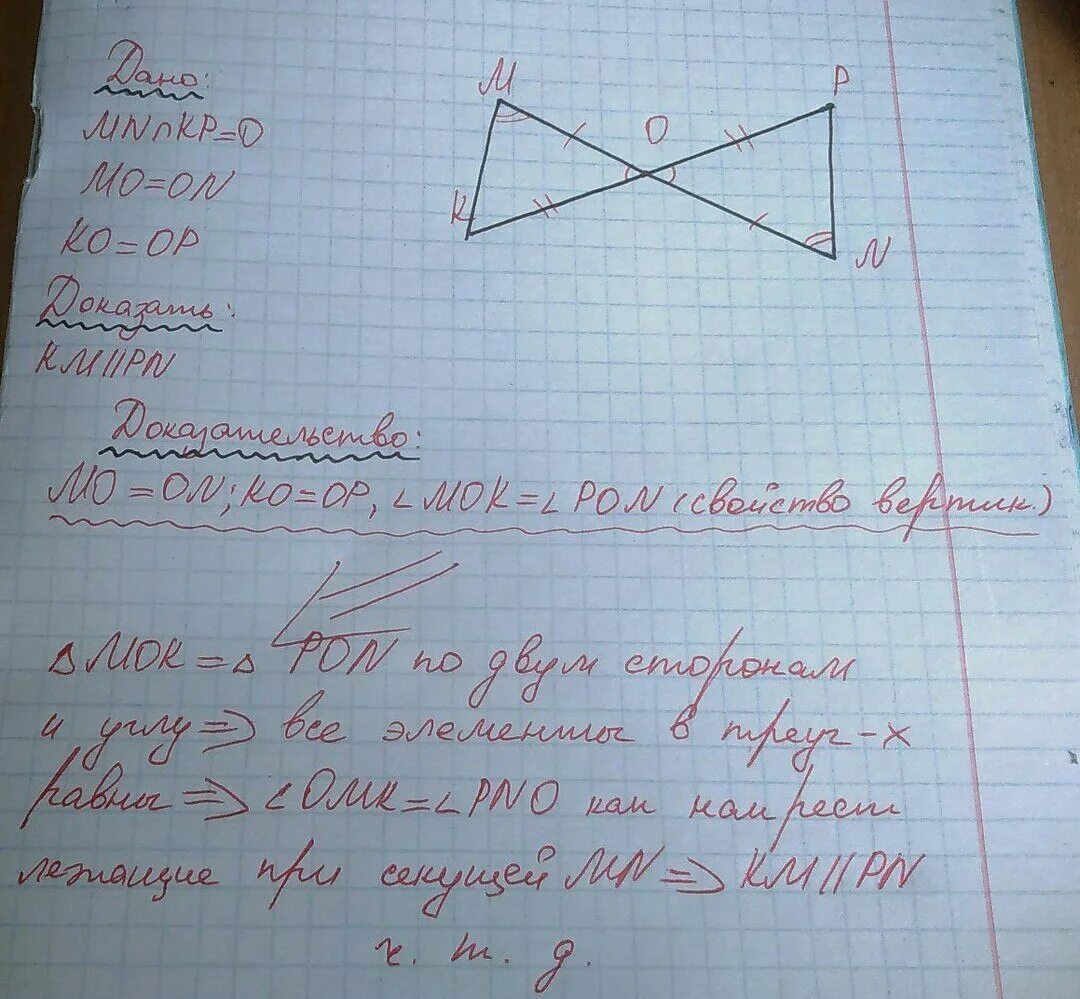 Дано:
MN∩KP=O
MO=ON
KO=OP
Доказать:
KM||PN
M
P
O
K
N
Доказательство:
MO=ON; KO=OP, ∠MOK=∠PON (свойство вертик.)
△MOK=△ PON по двум сторонам
и углу => все элементы в треуг-х
равны => ∠OMK=∠PNO как накрест
лежащие при секущей MN => KM||PN
ч. т. д.